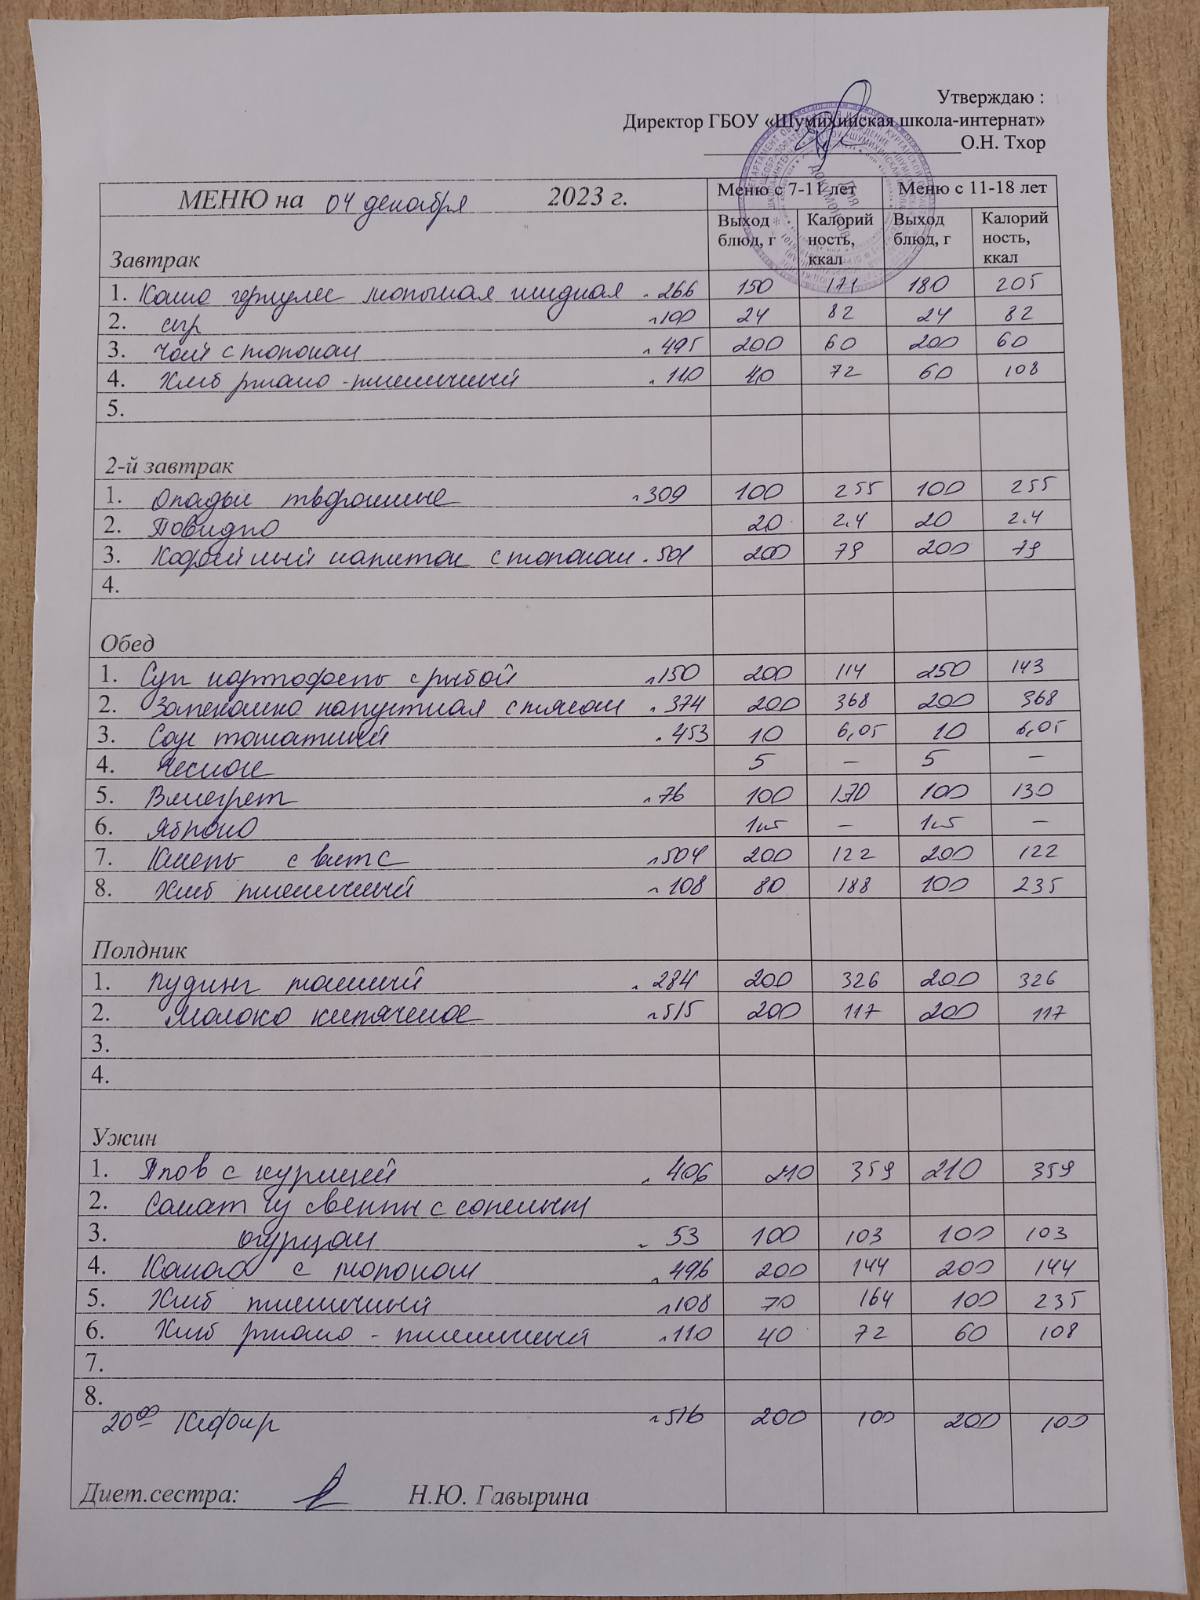 Утверждаю :
Директор ГБОУ «Шумихинская школа-интернат»
О.Н. Тхор
МЕНЮ на 04 декабря 2023 г. Меню с 7-11 лет Меню с 11-18 лет
Выход блюд, г Калорий ность, ккал Выход блюд, г Калорий ность, ккал
Завтрак
1. Каша геркулес молочная жидкая 266 150 171 180 205
2. сыр 100 24 82 24 82
3. Чай с молоком 495 200 60 200 60
4. Хлеб ржано-пшеничный 110 40 72 60 108
5.
2-й завтрак
1. Оладьи творожные 309 100 255 100 255
2. Повидло 20 2.4 20 2.4
3. Кофейный напиток с молоком 501 200 79 200 79
4.
Обед
1. Суп картофель с рыбой 150 200 114 250 143
2. Запеканка капустная с мясом 374 200 368 200 368
3. Соус томатный 453 10 6,05 10 6,05
4. Чеснок 5 – 5 –
5. Винегрет 76 100 130 100 130
6. Яблоко 1шт – 1шт –
7. Кисель с вит С 504 200 122 200 122
8. Хлеб пшеничный 108 80 188 100 235
Полдник
1. Пудинг манный 284 200 326 200 326
2. Молоко кипяченое 515 200 117 200 117
3.
4.
Ужин
1. Плов с курицей 406 210 359 210 359
2. Салат из свеклы с соленым
3. огурцом 53 100 103 100 103
4. Какао с молоком 496 200 144 200 144
5. Хлеб пшеничный 108 70 164 100 235
6. Хлеб ржано-пшеничный 110 40 72 60 108
7.
8.
20⁰⁰ Кефир 516 200 100 200 100
Диет.сестра: Н.Ю. Гавырина